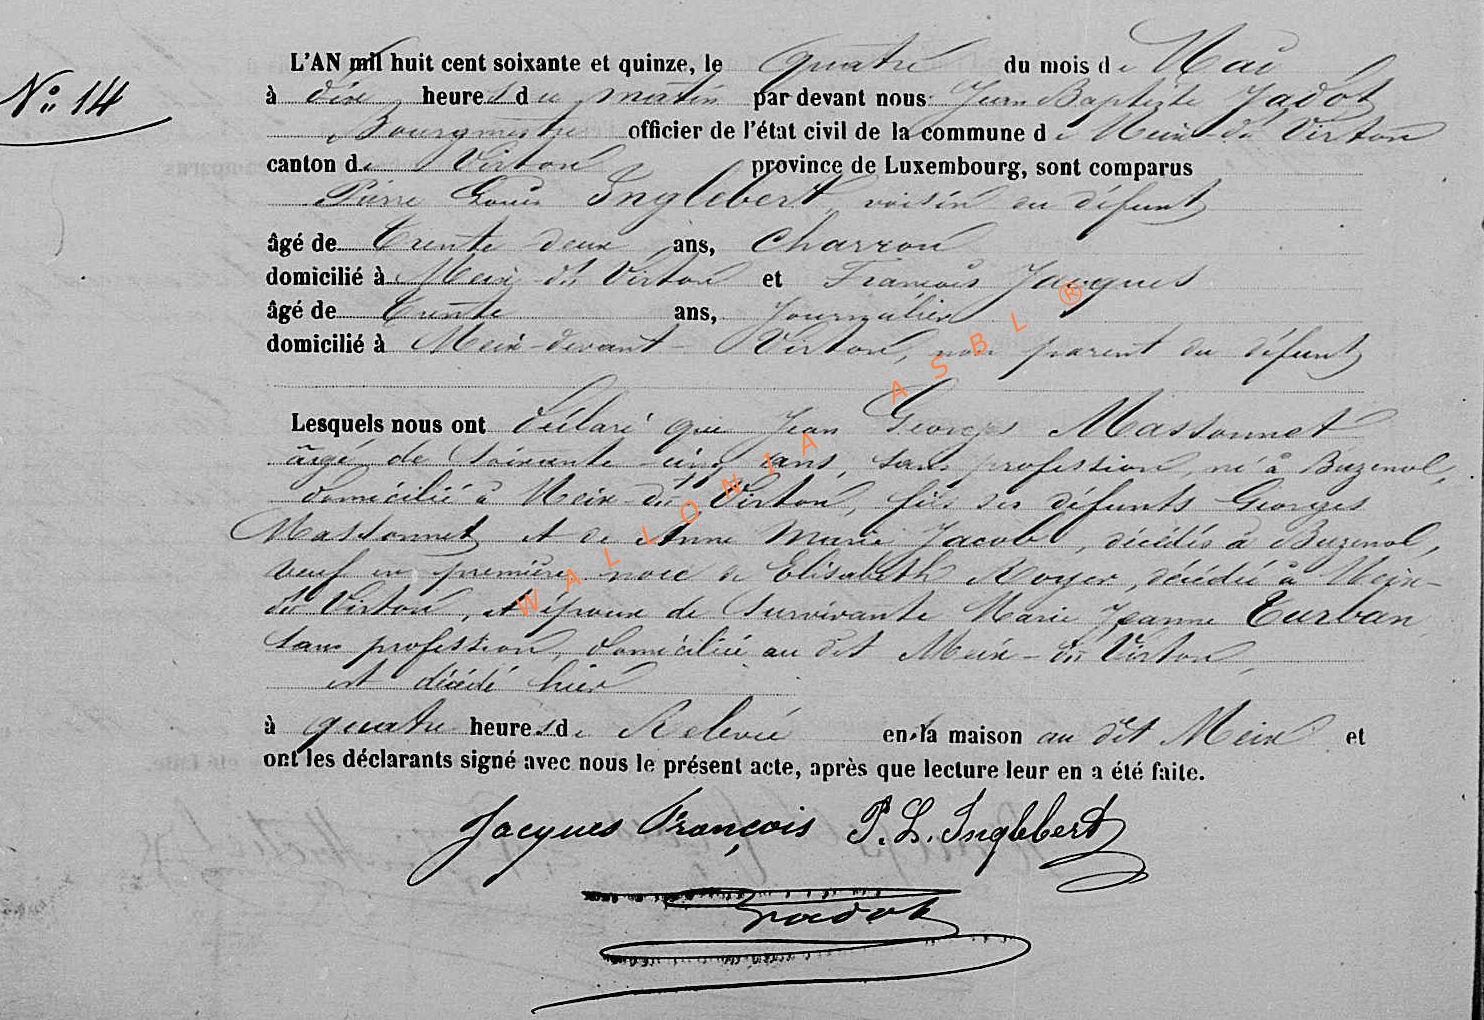 N° 14
L'AN mil huit cent soixante et quinze, le quatre du mois de Mai
à dix heures du matin par devant nous Jean Baptiste Jadot
Bourgmestre officier de l'état civil de la commune de Meix-dt Virton
canton de Virton province de Luxembourg, sont comparus
Pierre Louis Inglebert, voisin du défunt
âgé de Trente deux ans, Charron
domicilié à Meix-dt Virton et François Jacques
âgé de Trente ans, Journalier
domicilié à Meix-devant-Virton, non parent du défunt
Lesquels nous ont déclaré que Jean Georges Massonnet
âgé de soixante-cinq ans, sans profession, né à Buzenol,
domicilié à Meix-dt Virton, fils des défunts Georges
Massonnet et de Anne Marie Jacob, décédés à Buzenol,
veuf en première noce de Elisabeth Royer, décédée à Meix-
dt Virton, et époux de survivante Marie Jeanne Turban
sans profession, domiciliée au dit Meix-dt Virton,
est décédé hier
à quatre heures de Relevée en la maison au dit Meix et
ont les déclarants signé avec nous le présent acte, après que lecture leur en a été faite.
Jacques François P. L. Inglebert
Jadot
WALLONIA ASBL ®